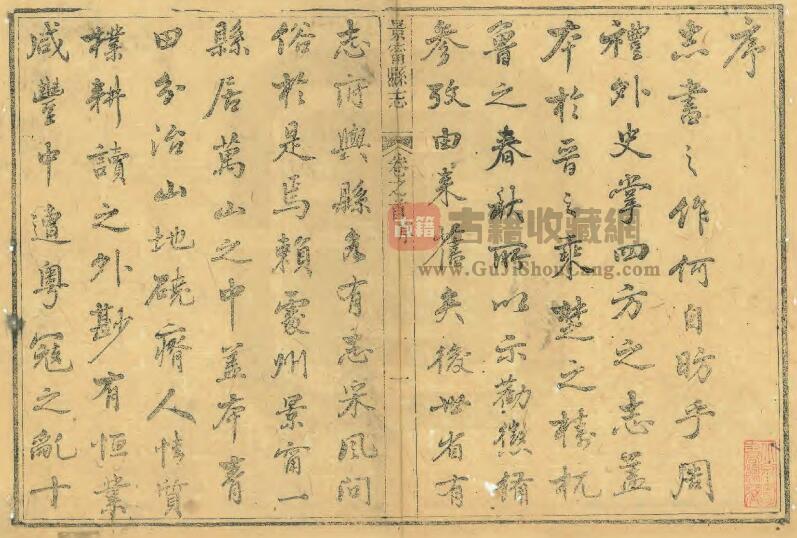 序
志書之作何自昉乎周
禮外史掌四方之志蓋
本於晉之乘楚之檮杌
魯之春秋所以示勸懲備
參攷由來舊矣後世省有
景甯縣志
卷之首序
一
志府與縣各有志采風問
俗於是焉賴處州景甯一
縣居萬山之中蓋本青
田分治山地磽瘠人情質
樸耕讀之外尠有恒業
咸豐中遭粵寇之亂十
古籍
古籍收藏網
www.GuJiShouCang.com